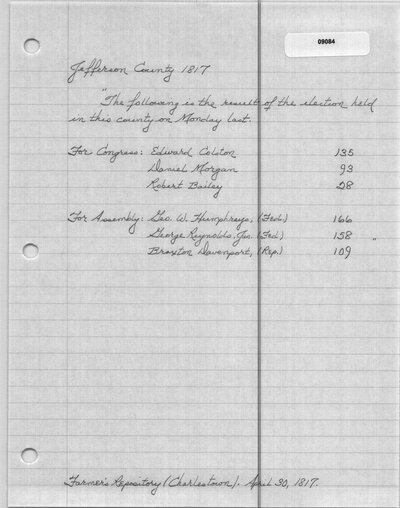 09084
Jefferson County 1817
"The following is the result of the election held
in this county on Monday last.
For Congress: Edward Colston 135
Daniel Morgan 93
Robert Bailey 28
For Assembly: Geo. W. Humphreys, (Fed.) 166
George Reynolds, Jun. (Fed.) 158 "
Braxton Davenport, (Rep.) 109
Farmer's Repository (Charlestown). April 30, 1817.